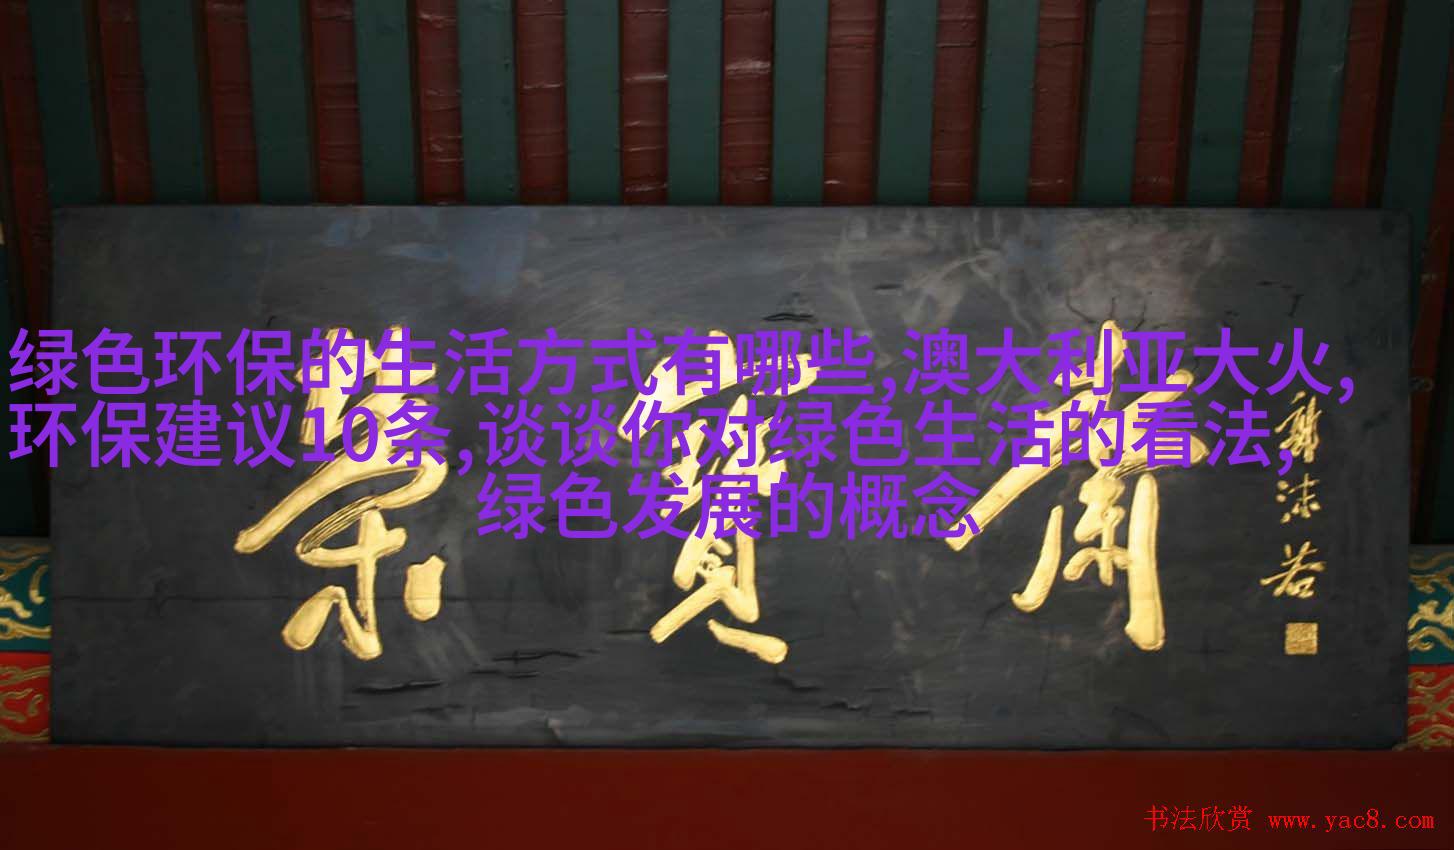 绿色环保的生活方式有哪些,澳大利亚大火,
环保建议10条,谈谈你对绿色生活的看法,
绿色发展的概念
荣寶齋
郭沫若
书法欣赏 www.yac8.com